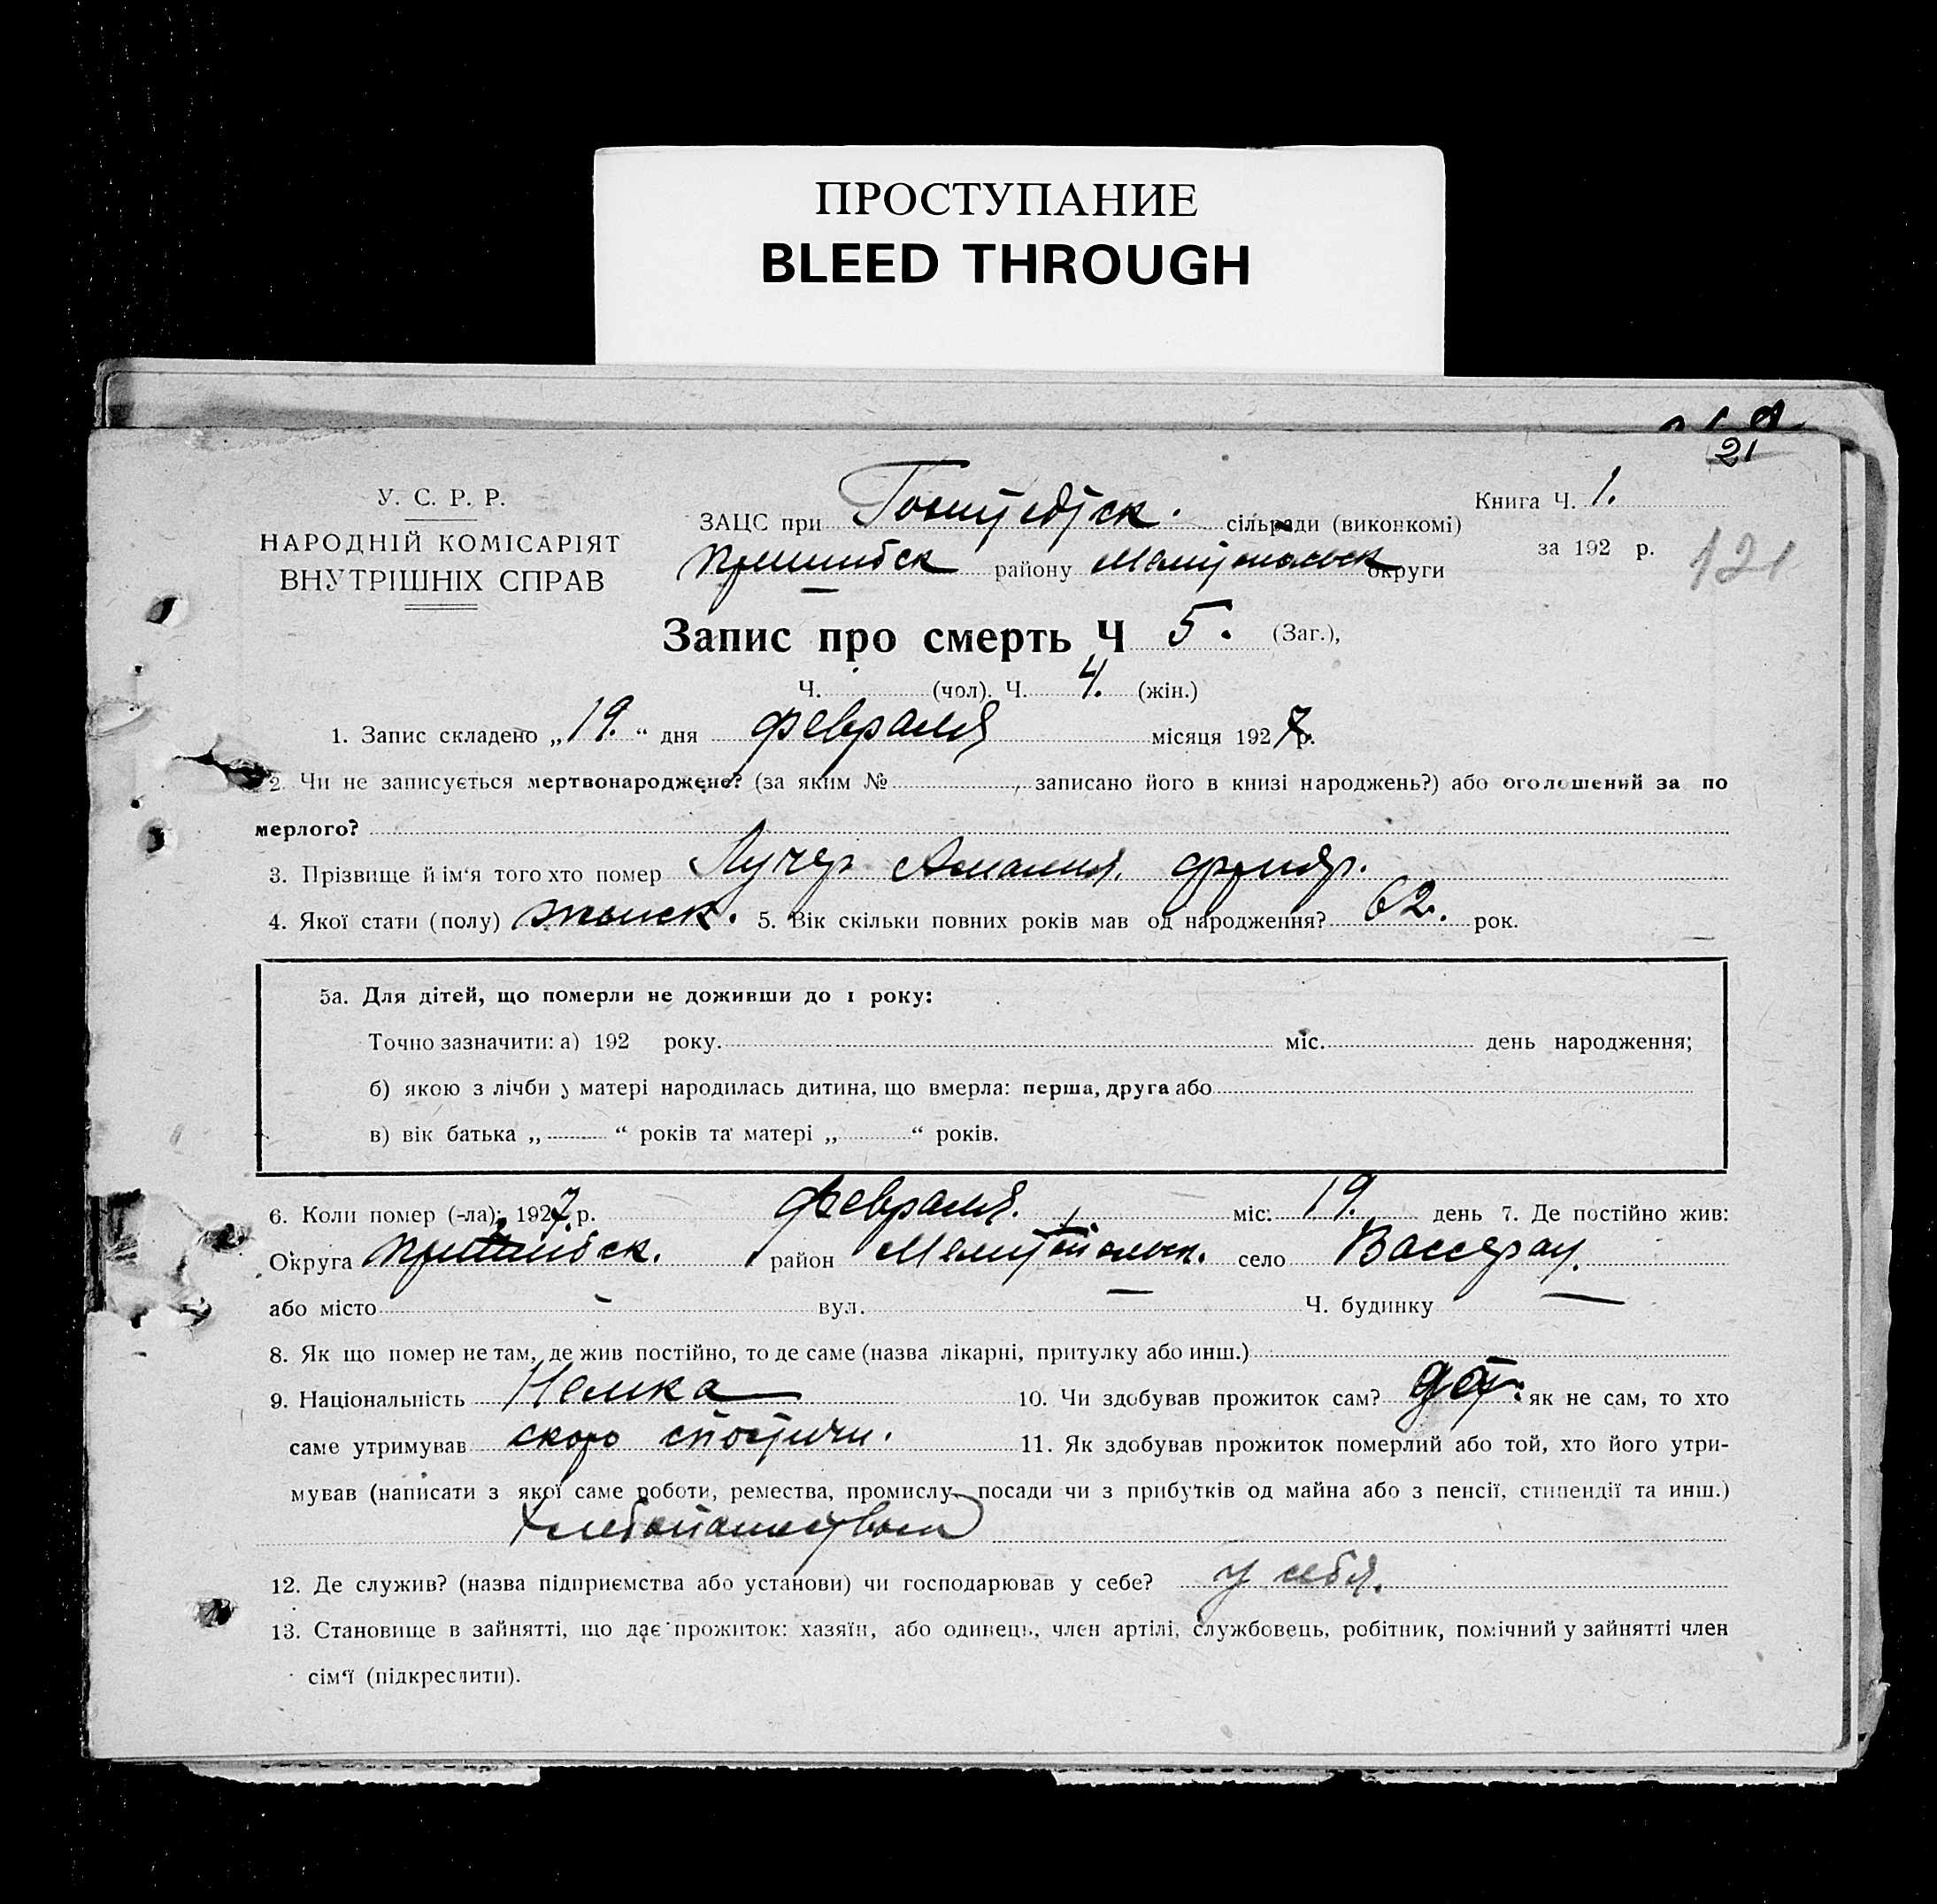 ПРОСТУПАНИЕ
BLEED THROUGH
21
У. С. Р. Р.
НАРОДНІЙ КОМІСАРІЯТ
ВНУТРІШНІХ СПРАВ
Книга Ч. 1.
за 192 р.
121
ЗАЦС при сільради (виконкомі)
Пришибск району Мелитопольск округи
Запис про смерть Ч 5. (Заг.),
Ч. (чол). Ч. 4. (жін.)
1. Запис складено „19.“ дня февраля місяця 1927 р.
2. Чи не записується мертвонароджене? (за яким № , записано його в книзі народжень?) або оголошений за по
мерлого?
3. Прізвище й ім‘я того хто помер Лучер Амалия.
4. Якої стати (полу) женск. 5. Вік скільки повних років мав од народження? 62. рок.
5а. Для дітей, що померли не доживши до 1 року:
Точно зазначити: а) 192 року. міс. день народження;
б) якою з лічби у матері народилась дитина, що вмерла: перша, друга або
в) вік батька „ “ років та матері „ “ років.
6. Коли помер (-ла): 1927 р. февраля. міс. 19. день 7. Де постійно жив:
Округа Пришибск. район Мелитопольск. село Вассерау.
або місто вул. Ч. будинку
8. Як що помер не там, де жив постійно, то де саме (назва лікарні, притулку або инш.)
9. Національність Немка 10. Чи здобував прожиток сам? як не сам, то хто
саме утримував 11. Як здобував прожиток померлий або той, хто його утри-
мував (написати з якої саме роботи, ремества, промислу, посади чи з прибутків од майна або з пенсії, стипендії та инш.)
12. Де служив? (назва підприємства або установи) чи господарював у себе? у себя.
13. Становище в зайнятті, що дає прожиток: хазяїн, або одинець, член артілі, службовець, робітник, помічний у зайнятті член
сім‘ї (підкреслити).